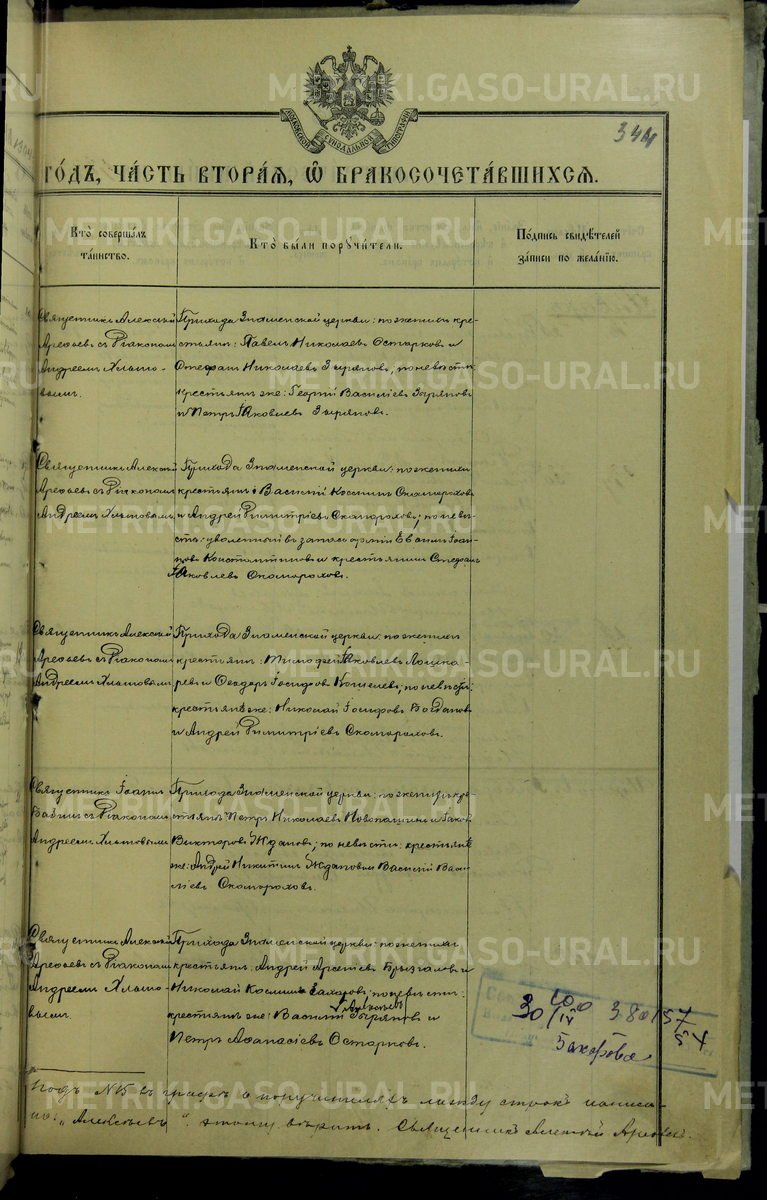 METRIKI.GASO-URAL.RU
МОСКОВСКОЙ СѴНОДАЛЬНОЙ ТИПОГРАФІИ
344
ГОДЪ, ЧАСТЬ ВТОРАЯ, Ѿ БРАКОСОЧЕТАВШИХСЯ.
Кто совершалъ таинство.
Кто были поручители.
Подпись свидѣтелей записи по желанію.
Священникъ Алексѣй
Арефьевъ съ Діакономъ
Андреемъ Хлыно-
вымъ.
Прихода Знаменской церкви: по женихѣ кре-
стьяне: Павелъ Николаевъ Остарковъ и
Стефанъ Николаевъ Зыряновъ; по невѣстѣ:
крестьяне же: Георгій Василіевъ Зыряновъ
и Петръ Яковлевъ Зыряновъ.
Священникъ Алексѣй
Арефьевъ съ Діакономъ
Андреемъ Хлыновымъ
Прихода Знаменской церкви: по женихѣ
крестьяне: Василій Косминъ Скоморо­ховъ
и Андрей Димитріевъ Скомороховъ; по невѣ-
стѣ: уволенный въ запасъ арміи Евгеній Іоан-
новъ Константиновъ и крестьянинъ Стефанъ
Яковлевъ Скомороховъ.
Священникъ Алексѣй
Арефьевъ съ Діакономъ
Андреемъ Хлыновымъ
Прихода Знаменской церкви: по женихѣ
крестьяне: Тимофей Яковлевъ Лошка-
ревъ и Ѳеодоръ Іосифовъ Кошелевъ; по невѣстѣ:
крестьяне же: Николай Іосифовъ Богдановъ
и Андрей Димитріевъ Скомороховъ.
Священникъ Іоаннъ
Бабинъ съ Діакономъ
Андреемъ Хлыновымъ
Прихода Знаменской церкви: по женихѣ кре-
стьяне Петръ Николаевъ Новопашинъ и Іаковъ
Викторовъ Ждановъ; по невѣстѣ: крестьяне
же: Андрей Никитинъ Ждановъ и Василій Васи-
ліевъ Скомороховъ.
Священникъ Алексѣй
Арефьевъ съ Діакономъ
Андреемъ Хлыно-
вымъ.
Прихода Знаменской церкви: по женихѣ
крестьяне: Андрей Арсеніевъ Брызгаловъ и
Николай Косминъ Захаровъ; по невѣстѣ:
Алексѣевъ
крестьяне же: Василій Зыряновъ и
Петръ Аѳанасіевъ Остарковъ.
30/IV
Захарова
Подъ №15 въ графѣ о поручителяхъ между строкъ написа-
но: „Алексѣевъ“ этому вѣрить. Священникъ Алексѣй Арефьевъ.